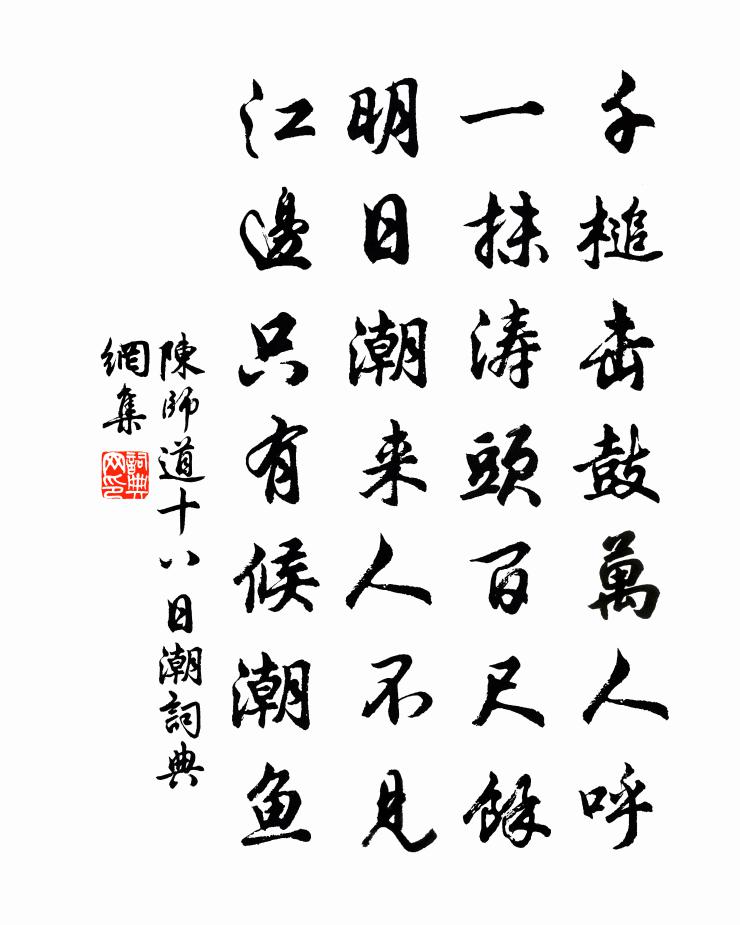 千槌击鼓萬人呼
一抹涛頭百尺餘
明日潮来人不見
江邊只有候潮鱼
陳師道十八日潮詞典
網集
詞典網印